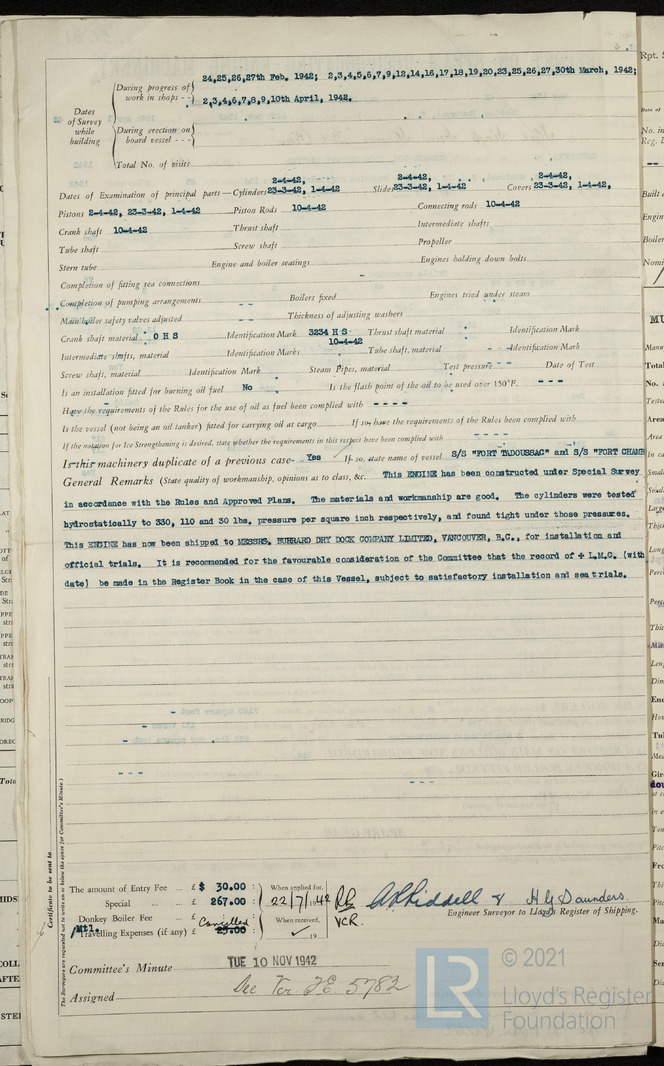 24,25,26,27th Feb. 1942; 2,3,4,5,6,7,9,12,14,16,17,18,19,20,23,25,26,27,30th March, 1942;
Dates of Survey while building
During progress of work in shops - - 2,3,4,6,7,8,9,10th April, 1942.
During erection on board vessel - - -
Total No. of visits
Dates of Examination of principal parts—Cylinders 2-4-42, 23-3-42, 1-4-42 Slides 2-4-42, 23-3-42, 1-4-42 Covers 2-4-42, 23-3-42, 1-4-42,
Pistons 2-4-42, 23-3-42, 1-4-42 Piston Rods 10-4-42 Connecting rods 10-4-42
Crank shaft 10-4-42 Thrust shaft Intermediate shafts
Tube shaft Screw shaft Propeller
Stern tube Engine and boiler seatings Engines holding down bolts
Completion of fitting sea connections
Completion of pumping arrangements - - Boilers fixed Engines tried under steam
Main boiler safety valves adjusted - - Thickness of adjusting washers
Crank shaft material O H S Identification Mark 3234 H S 10-4-42 Thrust shaft material Identification Mark
Intermediate shafts, material Identification Marks Tube shaft, material - - Identification Mark
Screw shaft, material Identification Mark Steam Pipes, material Test pressure - - Date of Test
Is an installation fitted for burning oil fuel No Is the flash point of the oil to be used over 150°F. - - -
Have the requirements of the Rules for the use of oil as fuel been complied with - - - -
Is the vessel (not being an oil tanker) fitted for carrying oil as cargo If so have the requirements of the Rules been complied with
If the notation for Ice Strengthening is desired, state whether the requirements in this respect have been complied with - - - - -
Is this machinery duplicate of a previous case- Yes If so, state name of vessel S/S "FORT TADOUSSAC" and S/S "FORT CHAMB
General Remarks (State quality of workmanship, opinions as to class, &c. This ENGINE has been constructed under Special Survey
in accordance with the Rules and Approved Plans. The materials and workmanship are good. The cylinders were tested
hydrostatically to 330, 110 and 30 lbs. pressure per square inch respectively, and found tight under those pressures.
This ENGINE has now been shipped to MESSRS. BURRARD DRY DOCK COMPANY LIMITED, VANCOUVER, B.C., for installation and
official trials. It is recommended for the favourable consideration of the Committee that the record of + L.M.C. (with
date) be made in the Register Book in the case of this Vessel, subject to satisfactory installation and sea trials.
Certificate to be sent to
(The Surveyors are requested not to write on or below the space for Committee's Minute.)
The amount of Entry Fee ... £ $ 30.00 When applied for,
Special ... £ 267.00 22/7/1942
Donkey Boiler Fee ... £ Cancelled When received,
Mtl. Travelling Expenses (if any) £ 25.00 19
VCR.
A Riddell & H G Saunders.
Engineer Surveyor to Lloyd's Register of Shipping.
Committee's Minute TUE 10 NOV 1942
Assigned See Vcr. F.E. 5782
LR © 2021
Lloyd's Register
Foundation